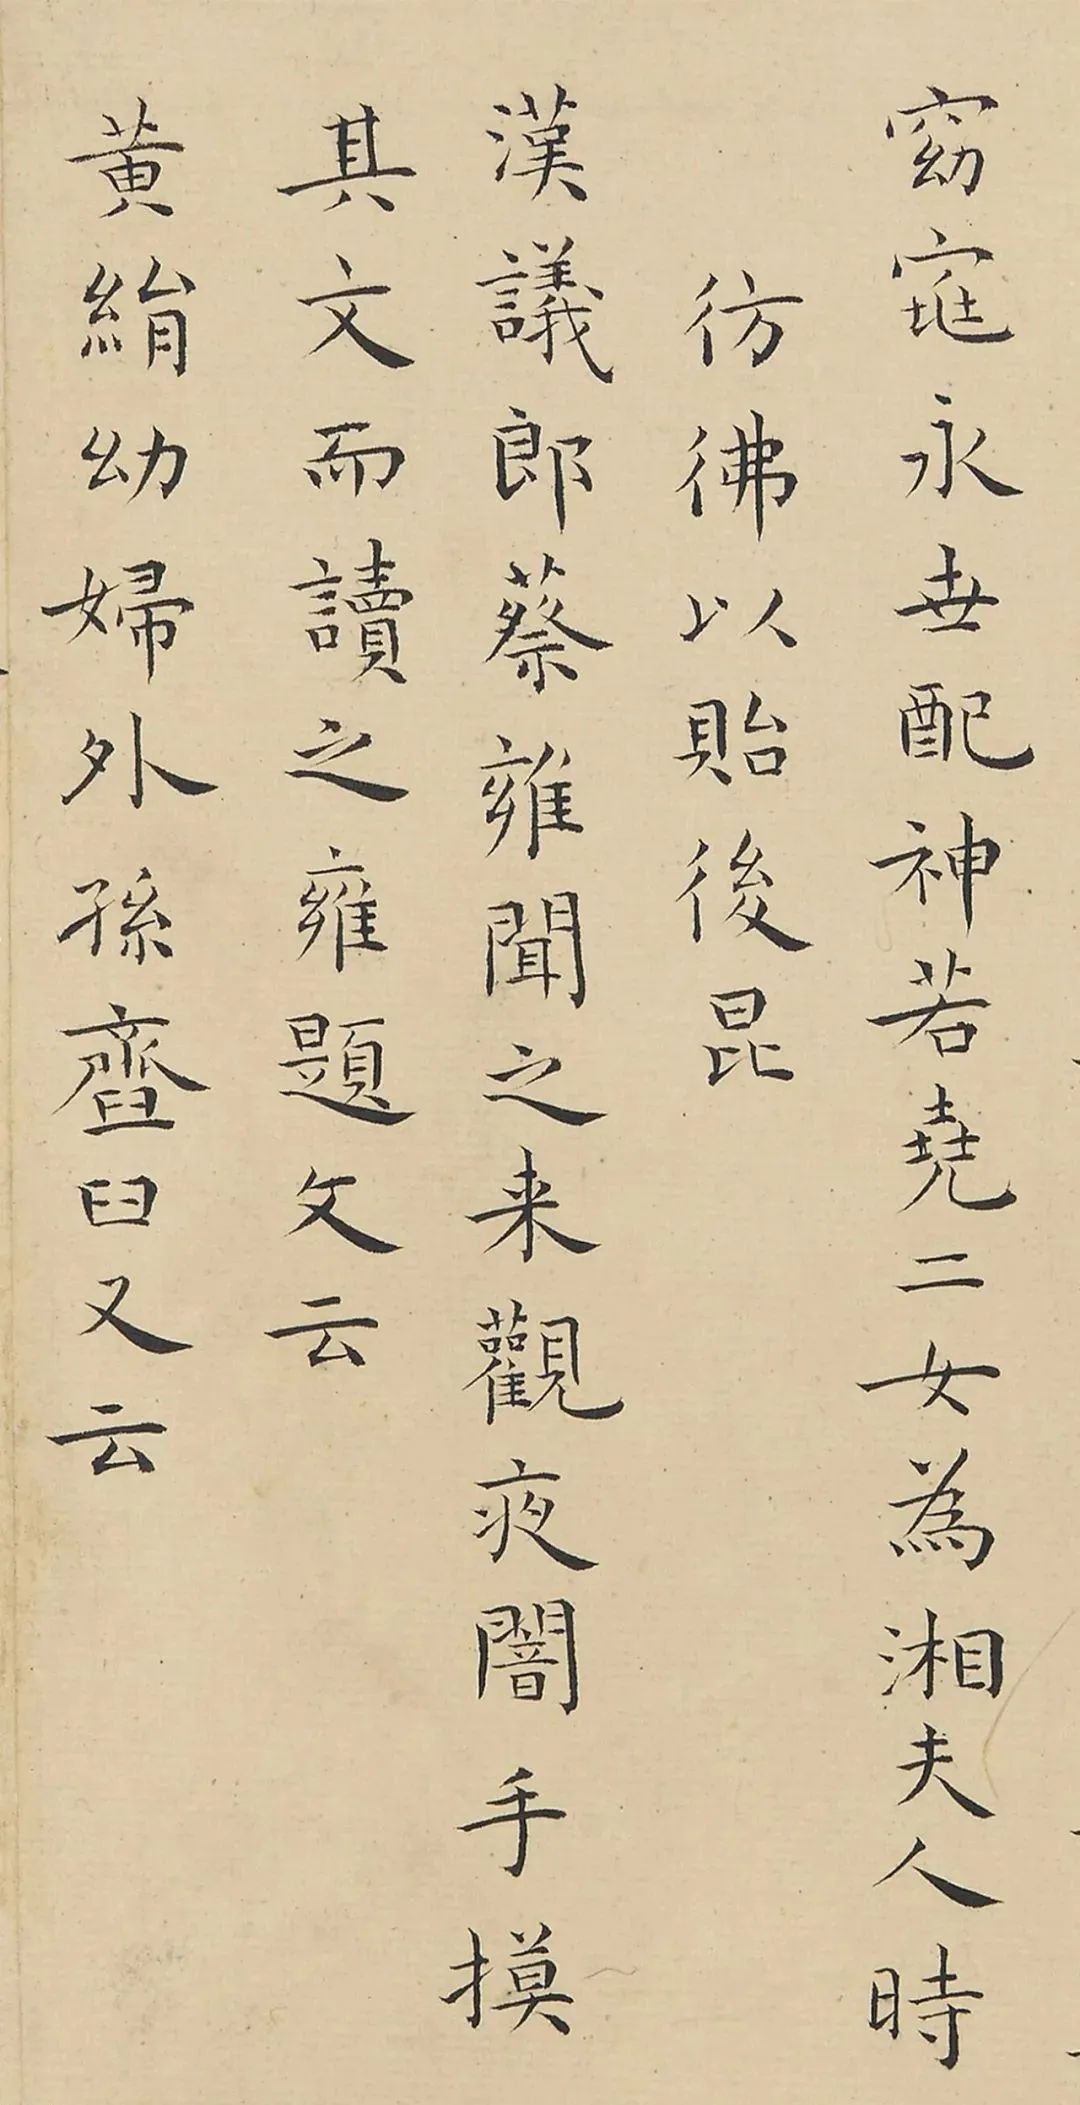 窈窕永世配神若堯二女為湘夫人時
彷彿以貽後昆
漢議郎蔡雍聞之来觀夜闇手摸
其文而讀之雍題文云
黄絹幼婦外孫齏臼又云